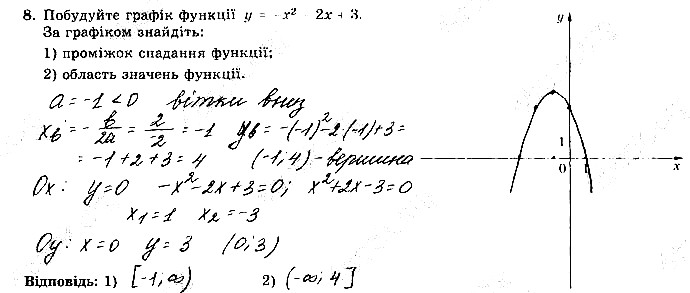 8. Побудуйте графік функції y = -x² - 2x + 3.
За графіком знайдіть:
1) проміжок спадання функції;
2) область значень функції.
a = -1 < 0 вітки вниз
xв = -b/2a = 2/-2 = -1 yв = -(-1)²-2(-1)+3 =
= -1+2+3 = 4 (-1; 4) - вершина
Ox: y=0 -x²-2x+3=0; x²+2x-3=0
x₁=1 x₂=-3
Oy: x=0 y=3 (0; 3)
Відповідь: 1) [-1; ∞) 2) (-∞; 4]
y
1
0
x